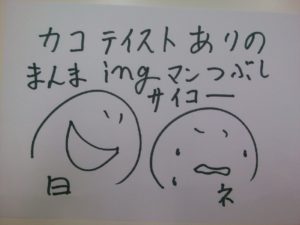 カコ テイスト ありの
まんま ing マンつぶし
サイコー
日
ネ